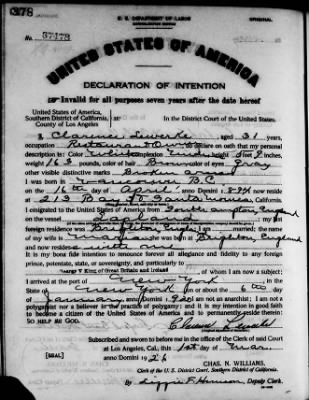 378
U. S. DEPARTMENT OF LABOR
ORIGINAL
No.
UNITED STATES OF AMERICA
DECLARATION OF INTENTION
Invalid for all purposes seven years after the date hereof
United States of America,
Southern District of California,
County of Los Angeles
In the District Court of the United States.
I, Clarence aged 31 years,
occupation Restaurant do declare on oath that my personal
description is: Color White complexion height 5 feet inches,
weight 163 pounds, color of hair Brown color of eyes Gray
other visible distinctive marks Broken
I was born in Vancouver B.C
on the 16th day of April anno Domini I now reside
at 213 Bay St Santa Monica, California.
I emigrated to the United States of America from Southampton, England
on the vessel Lapland my last
foreign residence was Brighton, Engl I am married; the name of
my wife is she was born in Brighton, England
and now resides with me
It is my bona fide intention to renounce forever all allegiance and fidelity to any foreign
prince, potentate, state, or sovereignty, and particularly to
George V King of Great Britain and Ireland, of whom I am now a subject;
I arrived at the port of New York
State of New York on or about the 6th day
of January, anno Domini 1920 I am not an anarchist; I am not a
polygamist nor a believer in the practice of polygamy; and it is my intention in good faith
to become a citizen of the United States of America and to permanently reside therein:
SO HELP ME GOD.
Subscribed and sworn to before me in the office of the Clerk of said Court
at Los Angeles, Cal., this 1st day of Mar.
anno Domini 1926
[SEAL]
CHAS. N. WILLIAMS,
Clerk of the U. S. District Court, Southern District of California.
By Deputy Clerk.